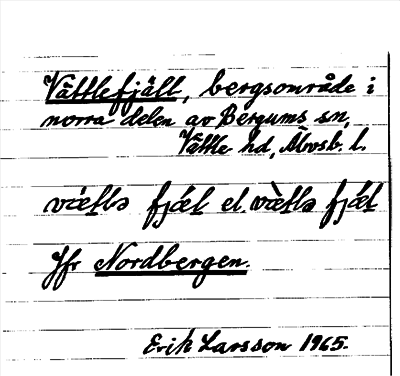 Vättlefjäll, bergsområde i
norra delen av Bergums sn,
Vättle hd, Älvsb. l.
fjæ̀l el. fjæ̀l
Jfr Nordbergen.
Erik Larsson 1965.